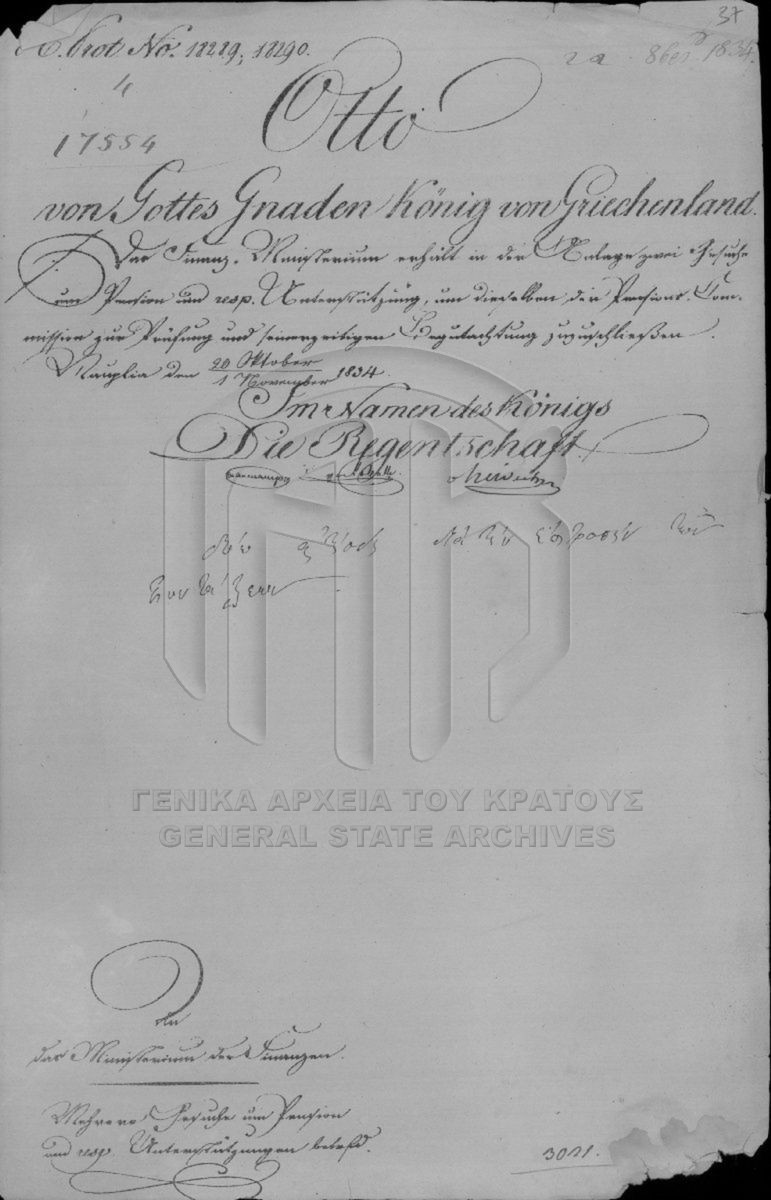 37
E. Prot. No. 18289, 18290.
17554
8βερ 1834.
Otto
von Gottes Gnaden König von Griechenland.
Das Finanz-Ministerium erhält in der Anlage zwei Gesuche
um Pension und resp. Unterstützung, um dieselben der Pensions-Com-
mission zur Prüfung und seinerzeitigen Begutachtung zuzuschließen.
Nauplia den 20 Oktober / 1 November 1834.
Im Namen des Königs
Die Regentschaft.
ΓΕΝΙΚΑ ΑΡΧΕΙΑ ΤΟΥ ΚΡΑΤΟΥΣ
GENERAL STATE ARCHIVES
An
das Ministerium der Finanzen.
Mehrere Gesuche um Pension
und resp. Unterstützungen betrfd.